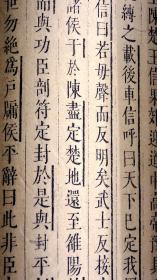 縛之載後車信呼曰天下已定我
信曰若毋聲而反明矣武士反接
諸侯于於陳盡定楚地還至雒陽
而與功臣剖符定封於是與封平
世勿絶爲戶牖侯平辭曰此非臣